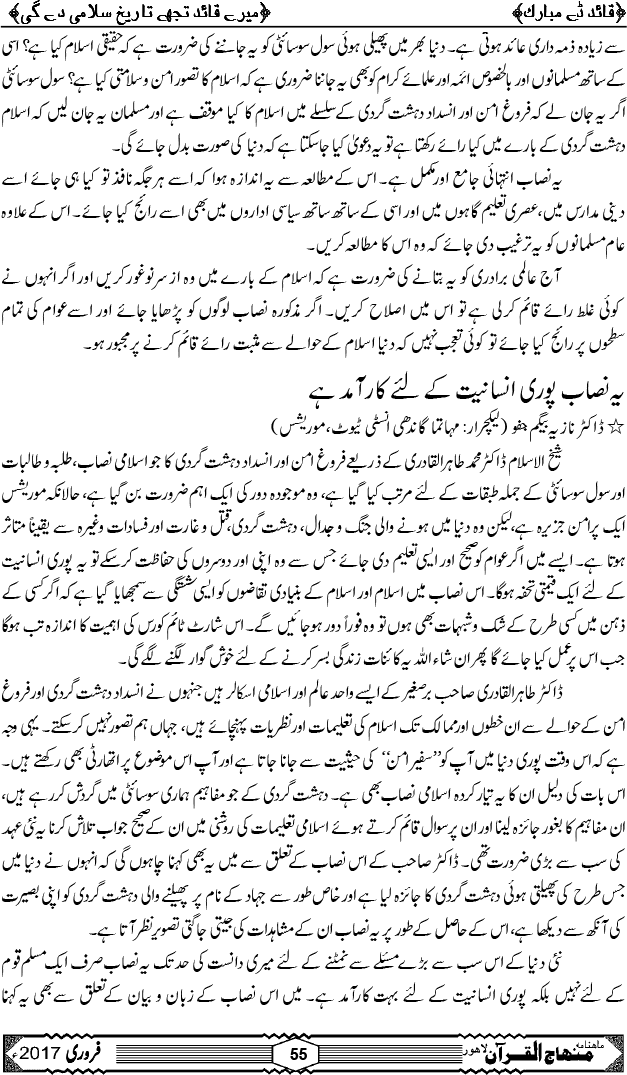 ﴿قائد ڈے مبارك﴾ ﴿میرے قائد تجھے تاریخ سلامی دے گی﴾
سے زیادہ ذمہ داری عائد ہوتی ہے۔ دنیا بھر میں پھیلی ہوئی سول سوسائٹی کو یہ جاننے کی ضرورت ہے کہ حقیقی اسلام کیا ہے؟ اسی
کے ساتھ مسلمانوں اور بالخصوص ائمہ اور علمائے کرام کو بھی یہ جاننا ضروری ہے کہ اسلام کا تصور امن و سلامتی کیا ہے؟ سول سوسائٹی
اگر یہ جان لے کہ فروغ امن اور انسداد دہشت گردی کے سلسلے میں اسلام کا کیا موقف ہے اور مسلمان یہ جان لیں کہ اسلام
دہشت گردی کے بارے میں کیا رائے رکھتا ہے تو یہ دعویٰ کیا جاسکتا ہے کہ دنیا کی صورت بدل جائے گی۔
یہ نصاب انتہائی جامع اور مکمل ہے۔ اس کے مطالعہ سے یہ اندازہ ہوا کہ اسے ہر جگہ نافذ تو کیا ہی جائے اسے
دینی مدارس میں، عصری تعلیم گاہوں میں اور اسی کے ساتھ ساتھ سیاسی اداروں میں بھی اسے رائج کیا جائے۔ اس کے علاوہ
عام مسلمانوں کو یہ ترغیب دی جائے کہ وہ اس کا مطالعہ کریں۔
آج عالمی برادری کو یہ بتانے کی ضرورت ہے کہ اسلام کے بارے میں وہ از سر نو غور کریں اور اگر انہوں نے
کوئی غلط رائے قائم کرلی ہے تو اس میں اصلاح کریں۔ اگر مذکورہ نصاب لوگوں کو پڑھایا جائے اور اسے عوام کی تمام
سطحوں پر رائج کیا جائے تو کوئی تعجب نہیں کہ دنیا اسلام کے حوالے سے مثبت رائے قائم کرنے پر مجبور ہو۔
یہ نصاب پوری انسانیت کے لئے کارآمد ہے
☆ ڈاکٹر نازیہ بیگم جفو (لیکچرار: مہاتما گاندھی انسٹی ٹیوٹ، موریشس)
شیخ الاسلام ڈاکٹر محمد طاہرالقادری کے ذریعے فروغ امن اور انسداد دہشت گردی کا جو اسلامی نصاب، طلبہ و طالبات
اور سول سوسائٹی کے جملہ طبقات کے لئے مرتب کیا گیا ہے، وہ موجودہ دور کی ایک اہم ضرورت بن گیا ہے، حالانکہ موریشس
ایک پرامن جزیرہ ہے، لیکن وہ دنیا میں ہونے والی جنگ و جدال، دہشت گردی، قتل و غارت اور فسادات وغیرہ سے یقیناً متاثر
ہوتا ہے۔ ایسے میں اگر عوام کو صحیح اور ایسی تعلیم دی جائے جس سے وہ اپنی اور دوسروں کی حفاظت کرسکے تو یہ پوری انسانیت
کے لئے ایک قیمتی تحفہ ہوگا۔ اس نصاب میں اسلام اور اسلام کے بنیادی تقاضوں کو ایسی شستگی سے سمجھایا گیا ہے کہ اگر کسی کے
ذہن میں کسی طرح کے شک و شبہات بھی ہوں تو وہ فوراً دور ہوجائیں گے۔ اس شارٹ ٹائم کورس کی اہمیت کا اندازہ تب ہوگا
جب اس پر عمل کیا جائے گا پھر ان شاء اللہ یہ کائنات زندگی بسر کرنے کے لئے خوش گوار لگنے لگے گی۔
ڈاکٹر طاہرالقادری صاحب برصغیر کے ایسے واحد عالم اور اسلامی اسکالر ہیں جنہوں نے انسداد دہشت گردی اور فروغ
امن کے حوالے سے ان خطوں اور ممالک تک اسلام کی تعلیمات اور نظریات پہنچائے ہیں، جہاں ہم تصور نہیں کرسکتے۔ یہی وجہ
ہے کہ اس وقت پوری دنیا میں آپ کو ’’سفیر امن‘‘ کی حیثیت سے جانا جاتا ہے اور آپ اس موضوع پر اتھارٹی بھی رکھتے ہیں۔
اس بات کی دلیل ان کا یہ تیار کردہ اسلامی نصاب بھی ہے۔ دہشت گردی کے جو مفاہیم ہماری سوسائٹی میں گردش کررہے ہیں،
ان مفاہیم کا بغور جائزہ لینا اور ان پر سوال قائم کرتے ہوئے اسلامی تعلیمات کی روشنی میں ان کے صحیح جواب تلاش کرنا یہ نئی عہد
کی سب سے بڑی ضرورت تھی۔ ڈاکٹر صاحب کے اس نصاب کے تعلق سے میں یہ بھی کہنا چاہوں گی کہ انہوں نے دنیا میں
جس طرح کی پھیلتی ہوئی دہشت گردی کا جائزہ لیا ہے اور خاص طور سے جہاد کے نام پر پھیلنے والی دہشت گردی کو اپنی بصیرت
کی آنکھ سے دیکھا ہے، اس کے حاصل کے طور پر یہ نصاب ان کے مشاہدات کی جیتی جاگتی تصویر نظر آتا ہے۔
نئی دنیا کے اس سب سے بڑے مسئلے سے نمٹنے کے لئے میری دانست کی حد تک یہ نصاب صرف ایک مسلم قوم
کے لئے نہیں بلکہ پوری انسانیت کے لئے بہت کارآمد ہے۔ میں اس نصاب کے زبان و بیان کے تعلق سے بھی یہ کہنا
ماهنامہ منهاج القرآن لاهور 55 فروری 2017ء